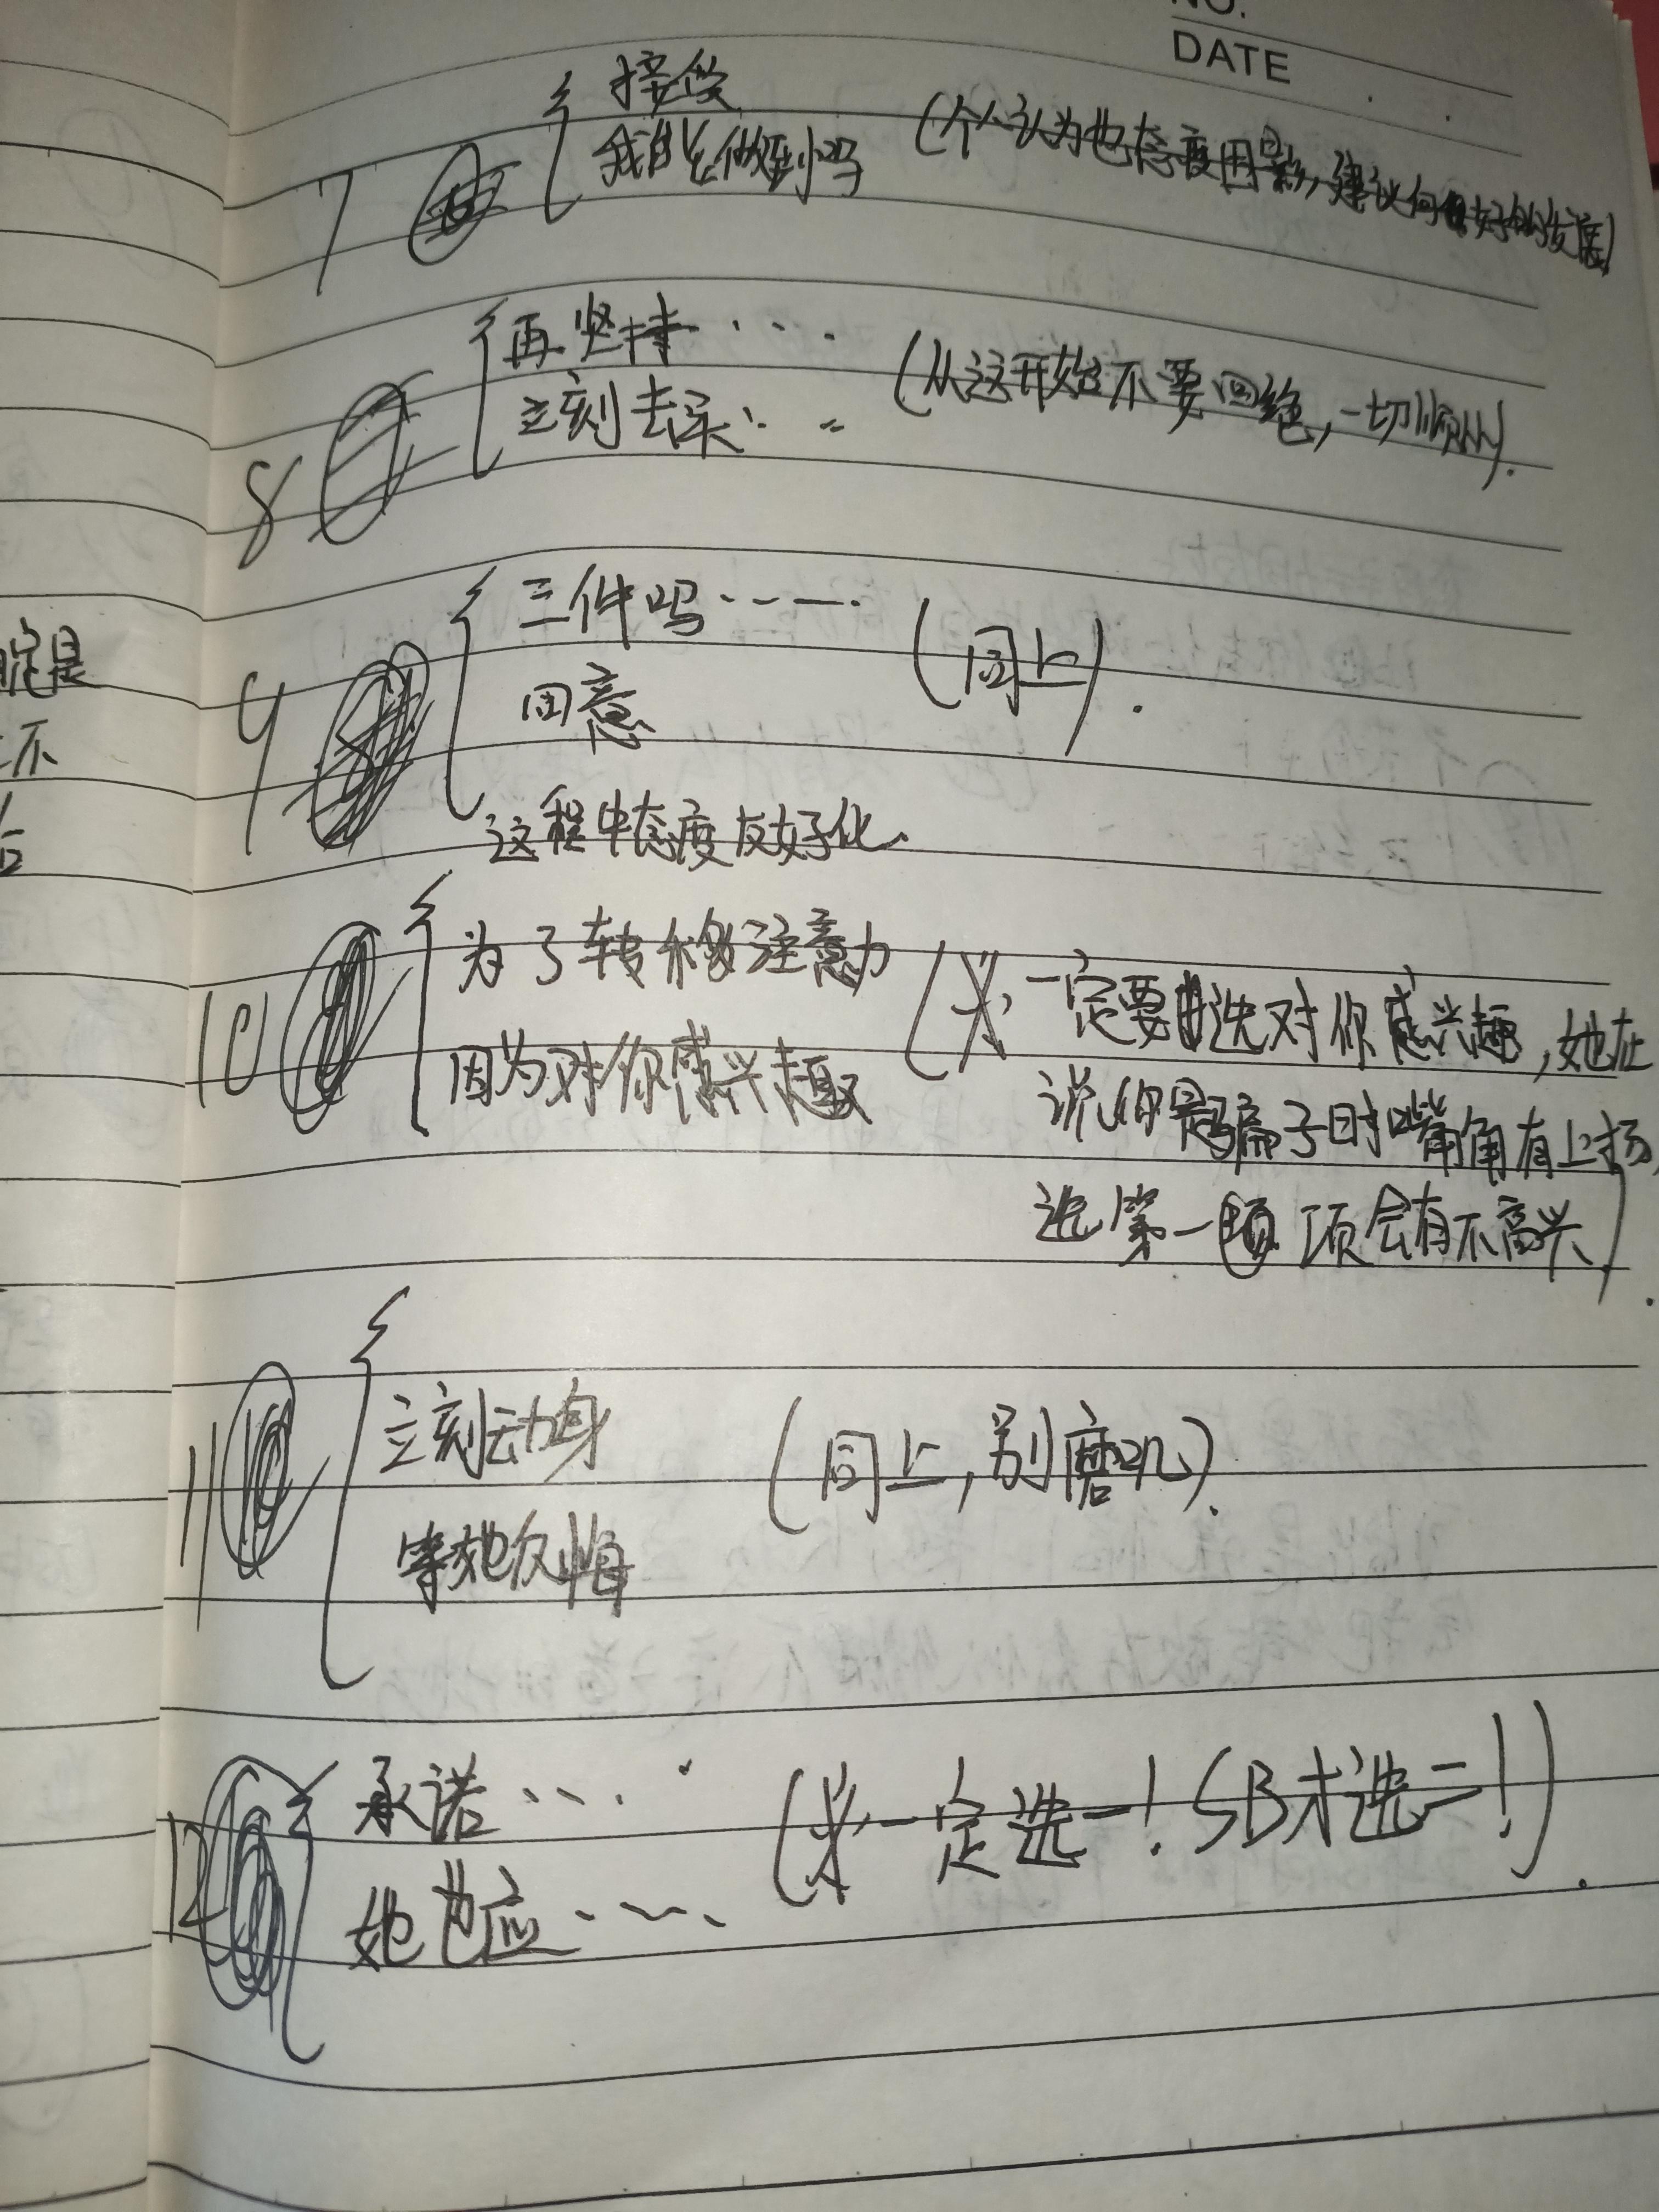 NO.
DATE
7 接受
我能做到吗
(个人认为她态度因素,建议向好的发展)
8 再坚持····
立刻去买·· ··
(从这开始不要回绝,一切顺从).
9 三件吗······
同意
(同上).
这程中态度友好化.
10 为了转移注意力
因为对你感兴趣
(※一定要选对你感兴趣,她在
说你是骗子时嘴角有上扬,
选第一项会有不高兴).
11 立刻动身
等她反悔
(同上,别磨叽).
12 承诺···
她也应····
(※一定选一!SB才选二!).
定是
不